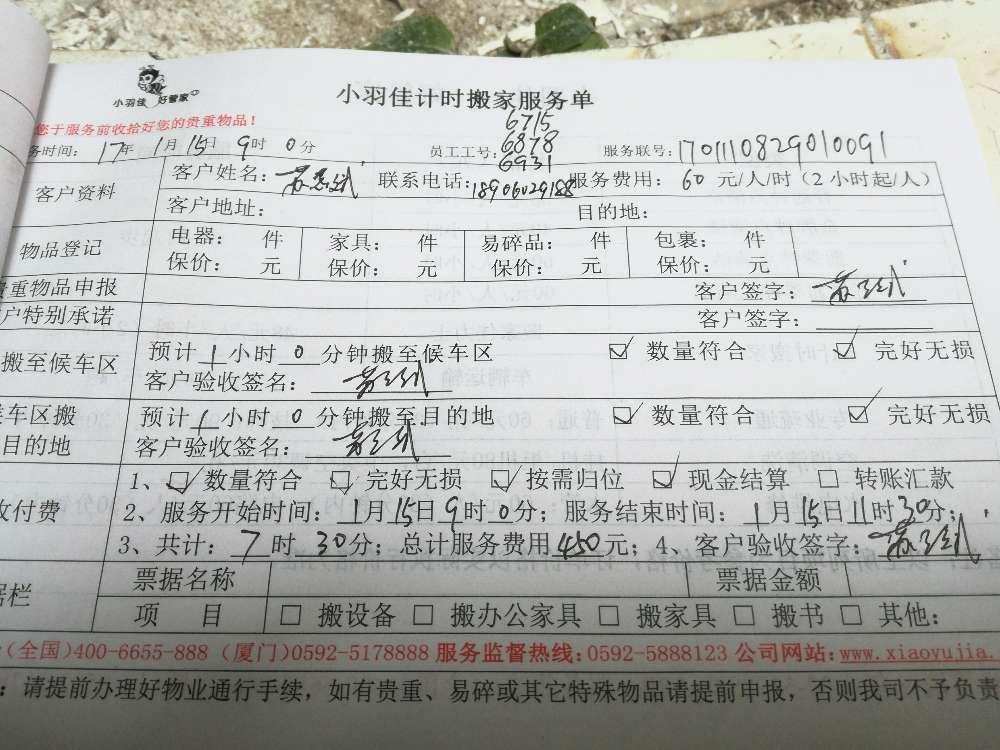 小羽佳 好管家
小羽佳计时搬家服务单
您于服务前收拾好您的贵重物品！
6715
6878
6931
务时间：17年1月15日9时0分 员工工号： 服务联号：1701110829010091
客户资料 客户姓名： 联系电话：18906029188 服务费用：60元/人/时（2小时起/人）
客户地址： 目的地：
物品登记 电器： 件 家具： 件 易碎品： 件 包裹： 件
保价： 元 保价： 元 保价： 元 保价： 元
贵重物品申报 客户签字：
户特别承诺 客户签字：
搬至候车区 预计1小时0分钟搬至候车区 ☑ 数量符合 ☑ 完好无损
客户验收签名：
车区搬 预计1小时0分钟搬至目的地 ☑ 数量符合 ☑ 完好无损
目的地 客户验收签名：
1、☑数量符合 ☑完好无损 ☑按需归位 ☑现金结算 □转账汇款
收付费 2、服务开始时间：1月15日9时0分；服务结束时间：1月15日11时30分；
3、共计：7时30分；总计服务费用450元；4、客户验收签字：
据栏 票据名称 票据金额
项 目 □搬设备 □搬办公家具 □搬家具 □搬书 □其他：
（全国）400-6655-888（厦门）0592-5178888 服务监督热线：0592-5888123 公司网站：www.xiaoyujia.
：请提前办理好物业通行手续，如有贵重、易碎或其它特殊物品请提前申报，否则我司不予负责